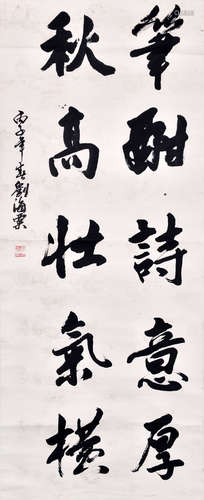 筆酣詩意厚
秋高壯氣橫
丙子年春劉海粟